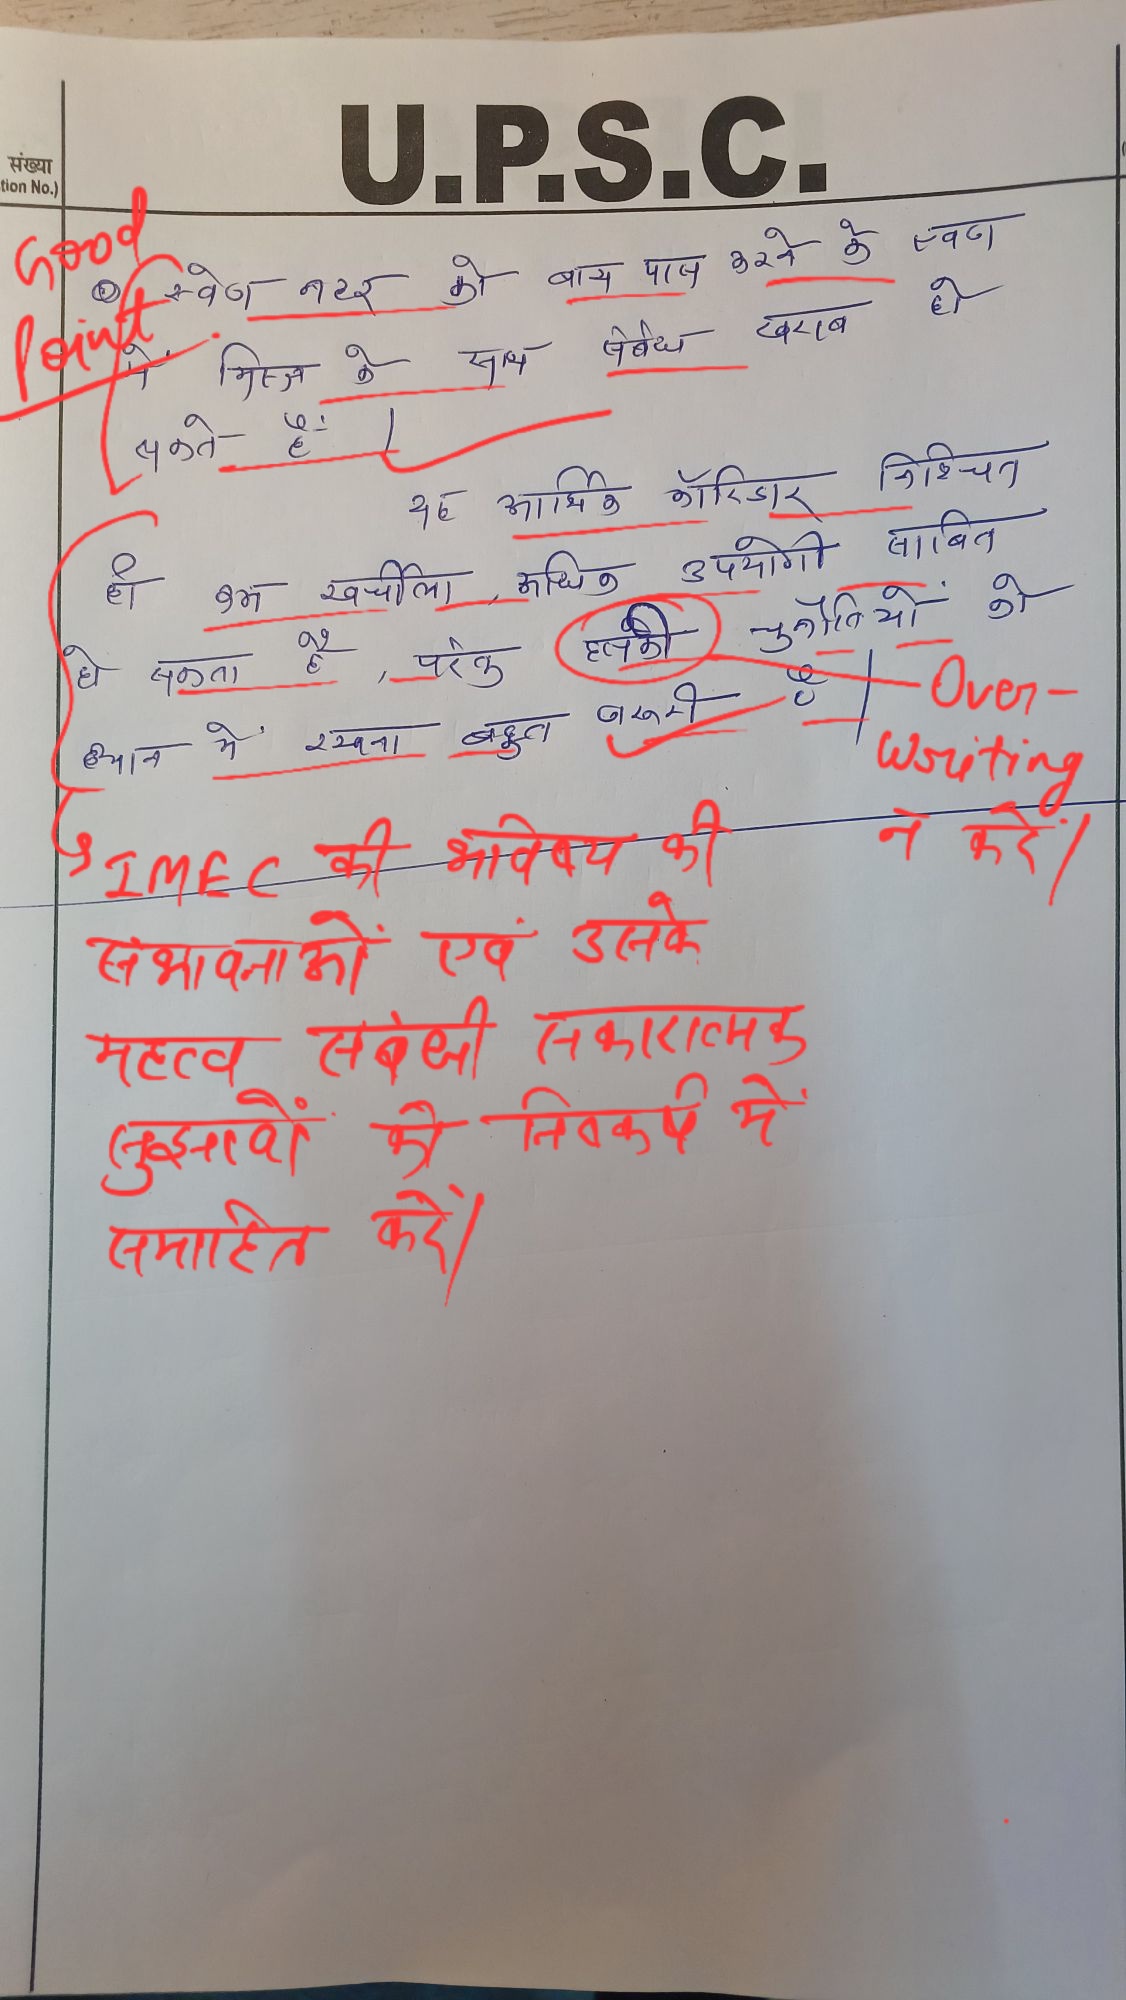 U.P.S.C.
संख्या
tion No.)
Good
Point
स्वेज नहर को बाय पास करने के
में मिस्र के साथ संबंध खराब हो
सकते हैं।
यह आर्थिक कॉरिडोर निश्चित
ही कम खर्चीला, अधिक उपयोगी साबित
हो सकता है, परंतु इसकी चुनौतियों को
ध्यान में रखना बहुत जरूरी है।
Over-
writing
न करें।
IMEC की भविष्य की
संभावनाओं एवं उसके
महत्व संबंधी सकारात्मक
सुझावों को निष्कर्ष में
समाहित करें।